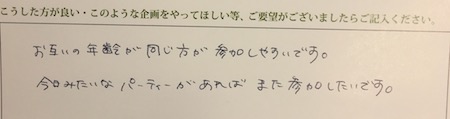 こうした方が良い・このような企画をやってほしい等、ご要望がございましたらご記入ください。
お互いの年齢が同じ方が参加しやすいです。
今日みたいなパーティーがあればまた参加したいです。